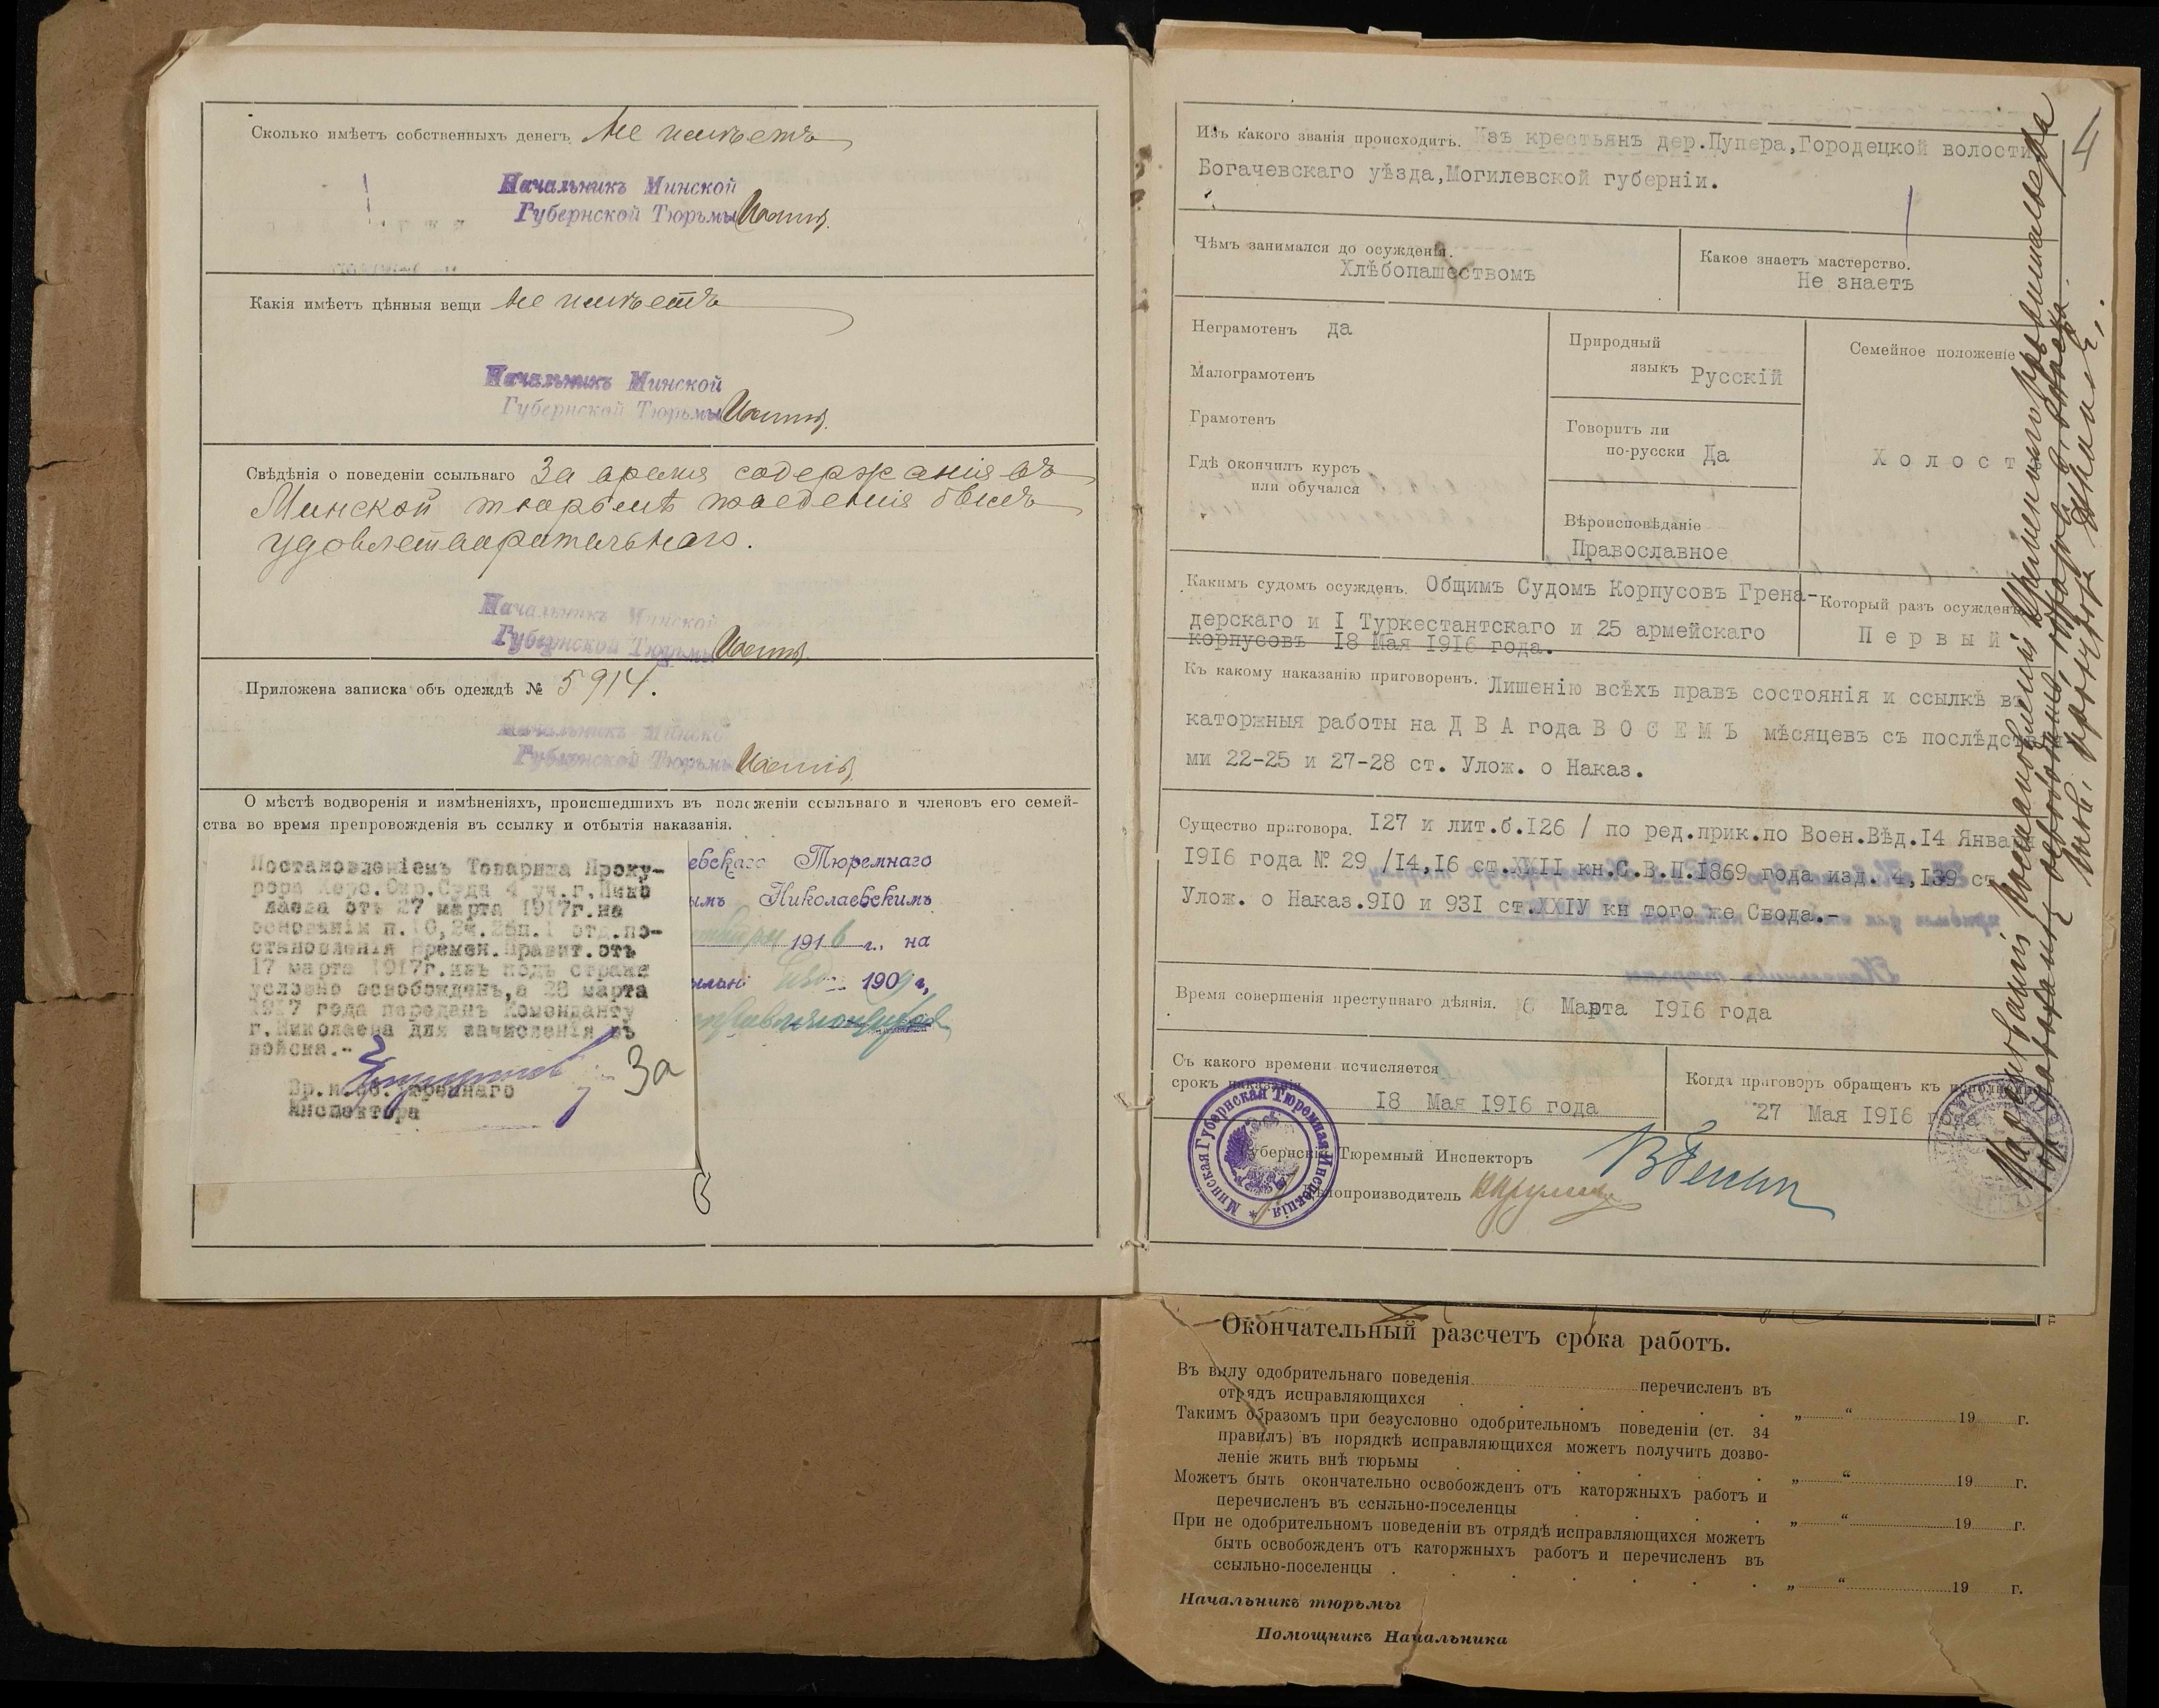 Сколько имѣетъ собственныхъ денегъ Не имѣетъ
Начальникъ Минской
Губернской Тюрьмы
Какія имѣетъ цѣнныя вещи Не имѣетъ
Начальникъ Минской
Губернской Тюрьмы
Свѣдѣнія о поведеніи ссыльнаго За время содержанія въ
Минской тюрьмѣ поведенія былъ
удовлетворительнаго.
Начальникъ Минской
Губернской Тюрьмы
Приложена записка объ одеждѣ № 5914.
Начальникъ Минской
Губернской Тюрьмы
О мѣстѣ водворенія и измѣненіяхъ, происшедшихъ въ положеніи ссыльнаго и членовъ его семей-
ства во время препровожденія въ ссылку и отбытія наказанія.
Постановленіемъ Товарища Проку-
рора Херс.Окр.Суда 4 уч.г.Нико
лаева отъ 27 марта 1917г.на
основаніи п.10,2ч.2бп.1 отд.по-
становленія Времен.Правит.отъ
17 марта 1917г.изъ подъ стражи
условно освобожденъ,а 28 марта
1917 года переданъ Коменданту
г.Николаева для зачисленія въ
войска.-
Вр.и.об.Тюремнаго
Инспектора
3а
евскаго Тюремнаго
ымъ Николаевскимъ
1916 г., на
1909 г.,
4
Изъ какого званія происходитъ. Изъ крестьянъ дер.Пупера,Городецкой волости
Богачевскаго уѣзда,Могилевской губерніи.
Чѣмъ занимался до осужденія.
Хлѣбопашествомъ
Какое знаетъ мастерство.
Не знаетъ
Неграмотенъ да
Малограмотенъ
Грамотенъ
Гдѣ окончилъ курсъ
или обучался
Природный
языкъ Русскій
Говоритъ ли
по-русски Да
Вѣроисповѣданіе
Православное
Семейное положеніе
Холостъ
Какимъ судомъ осужденъ. Общимъ Судомъ Корпусовъ Грена-
дерскаго и I Туркестантскаго и 25 армейскаго
корпусовъ 18 Мая 1916 года.
Который разъ осужденъ
Первый
Къ какому наказанію приговоренъ. Лишенію всѣхъ правъ состоянія и ссылкѣ въ
каторжныя работы на ДВА года ВОСЕМЬ мѣсяцевъ съ послѣдствія-
ми 22-25 и 27-28 ст. Улож. о Наказ.
Существо приговора. 127 и лит.б.126 / по ред.прик.по Воен.Вѣд.14 Января
1916 года № 29 /14,16 ст.XXII кн.С.В.П.1869 года изд. 4,139 ст.
Улож. о Наказ.910 и 931 ст.XXIУ кн того же Свода.-
Время совершенія преступнаго дѣянія. 6 Марта 1916 года
Съ какого времени исчисляется
срокъ наказанія
18 Мая 1916 года
Когда приговоръ обращенъ къ исполненію
27 Мая 1916 года
Губернскій Тюремный Инспекторъ
Дѣлопроизводитель
Минская Губернская Тюремная Инспекція *
Окончательный разсчетъ срока работъ.
Въ виду одобрительнаго поведенія перечисленъ въ
отрядъ исправляющихся „ “ 19 г.
Такимъ образомъ при безусловно одобрительномъ поведеніи (ст. 34
правилъ) въ порядкѣ исправляющихся можетъ получить дозво-
леніе жить внѣ тюрьмы „ “ 19 г.
Можетъ быть окончательно освобожденъ отъ каторжныхъ работъ и
перечисленъ въ ссыльно-поселенцы „ “ 19 г.
При не одобрительномъ поведеніи въ отрядѣ исправляющихся можетъ
быть освобожденъ отъ каторжныхъ работъ и перечисленъ въ
ссыльно-поселенцы „ “ 19 г.
Начальникъ тюрьмы
Помощникъ Начальника